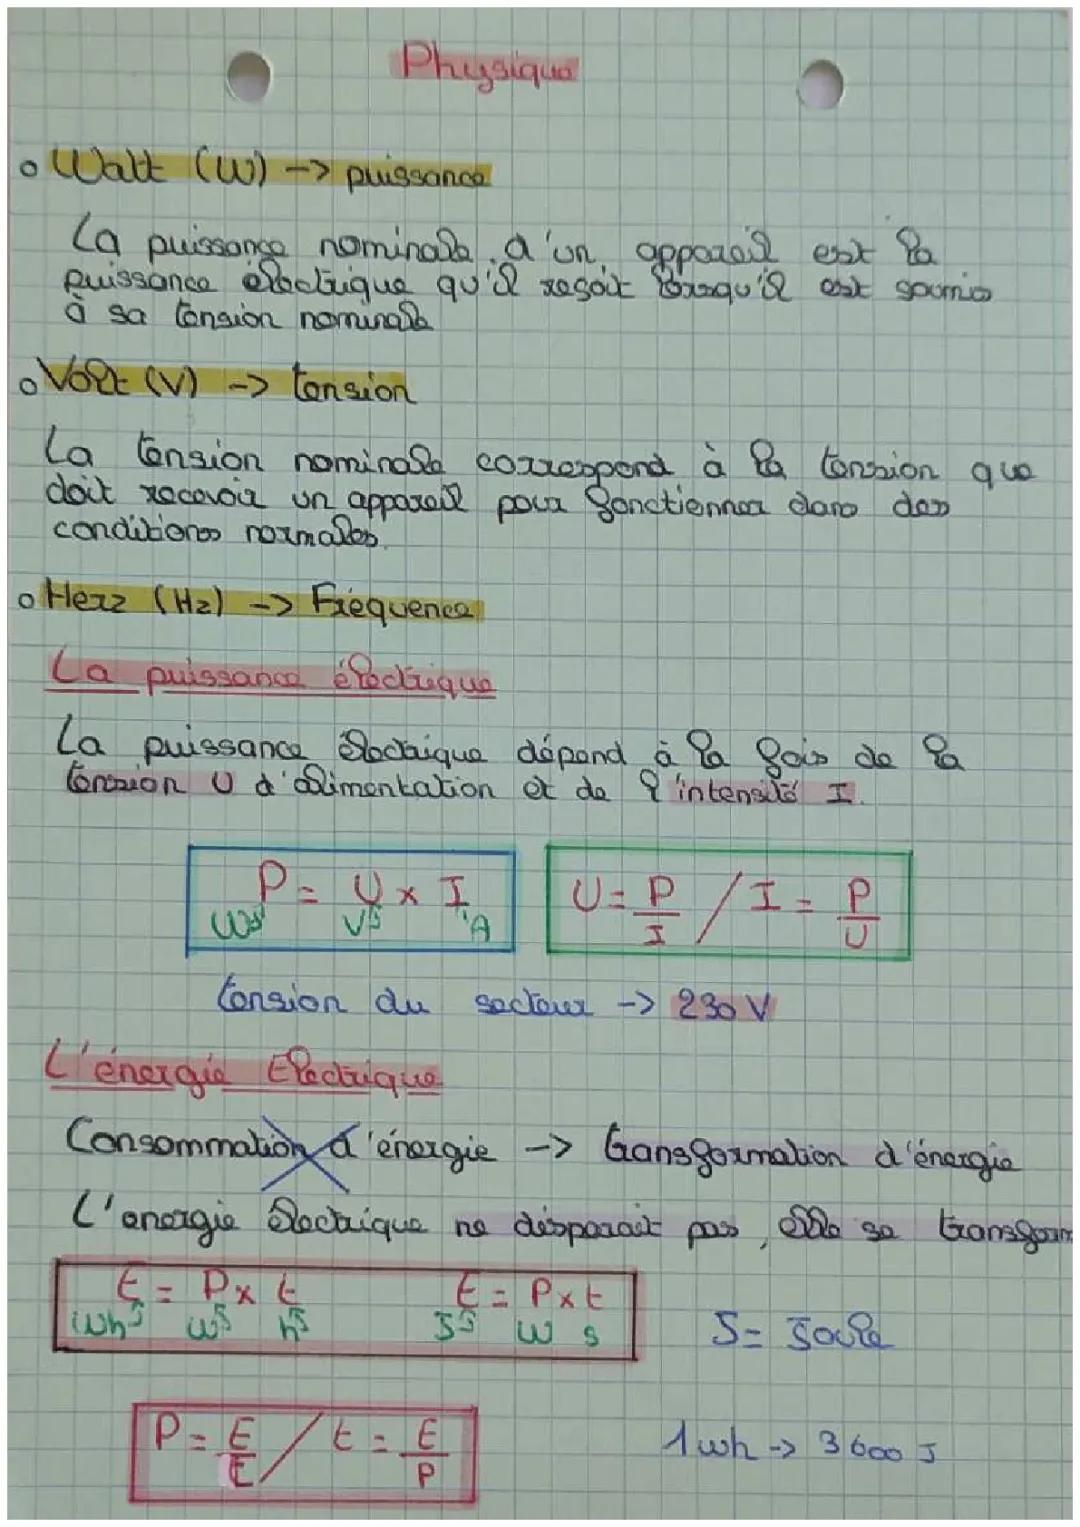 Physique
Watt (W) -> puissance
La puissance nominale d'un appareil est la
puissance électrique qu'il reçoit lorsqu'il est soumis
à sa tension nominale
Volt (V) -> tension
La tension nominale correspond à la tension que
doit recevoir un appareil pour fonctionner dans des
conditions normales.
Herz (Hz) -> Fréquence
La puissance électrique
La puissance électrique dépend à la fois de la
tension U d'alimentation et de l'intensité I.
P = U x I
W V A
U = P/I / I = P/U
tension du secteur -> 230 V
L'énergie Electrique
Consommation d'énergie -> transformation d'énergie
L'énergie électrique ne disparait pas, elle se transform
E = P x t E = P x t
Wh W h J W s
J = Joule
P = E/t / t = E/P
1 wh -> 3600 J